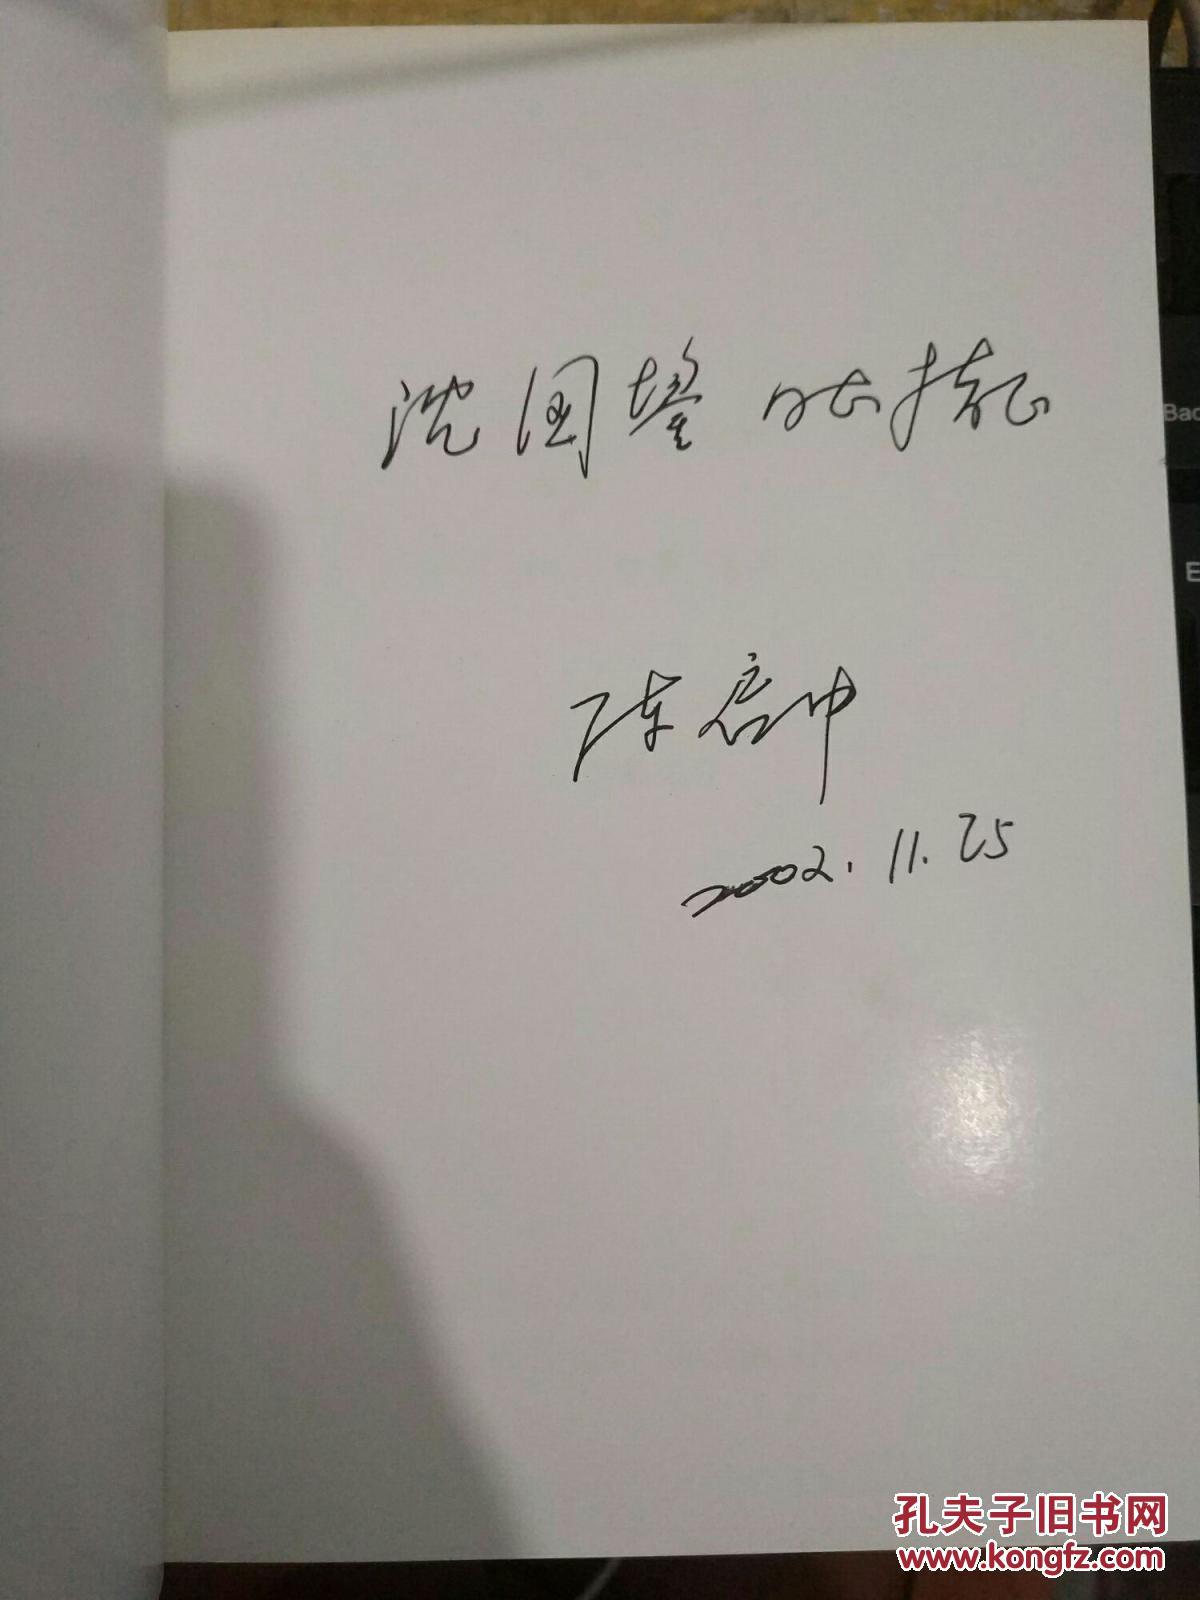 沈国鋆 比指
陈启中
2002.11.25
Bac
E
孔夫子旧书网
www.kongfz.com